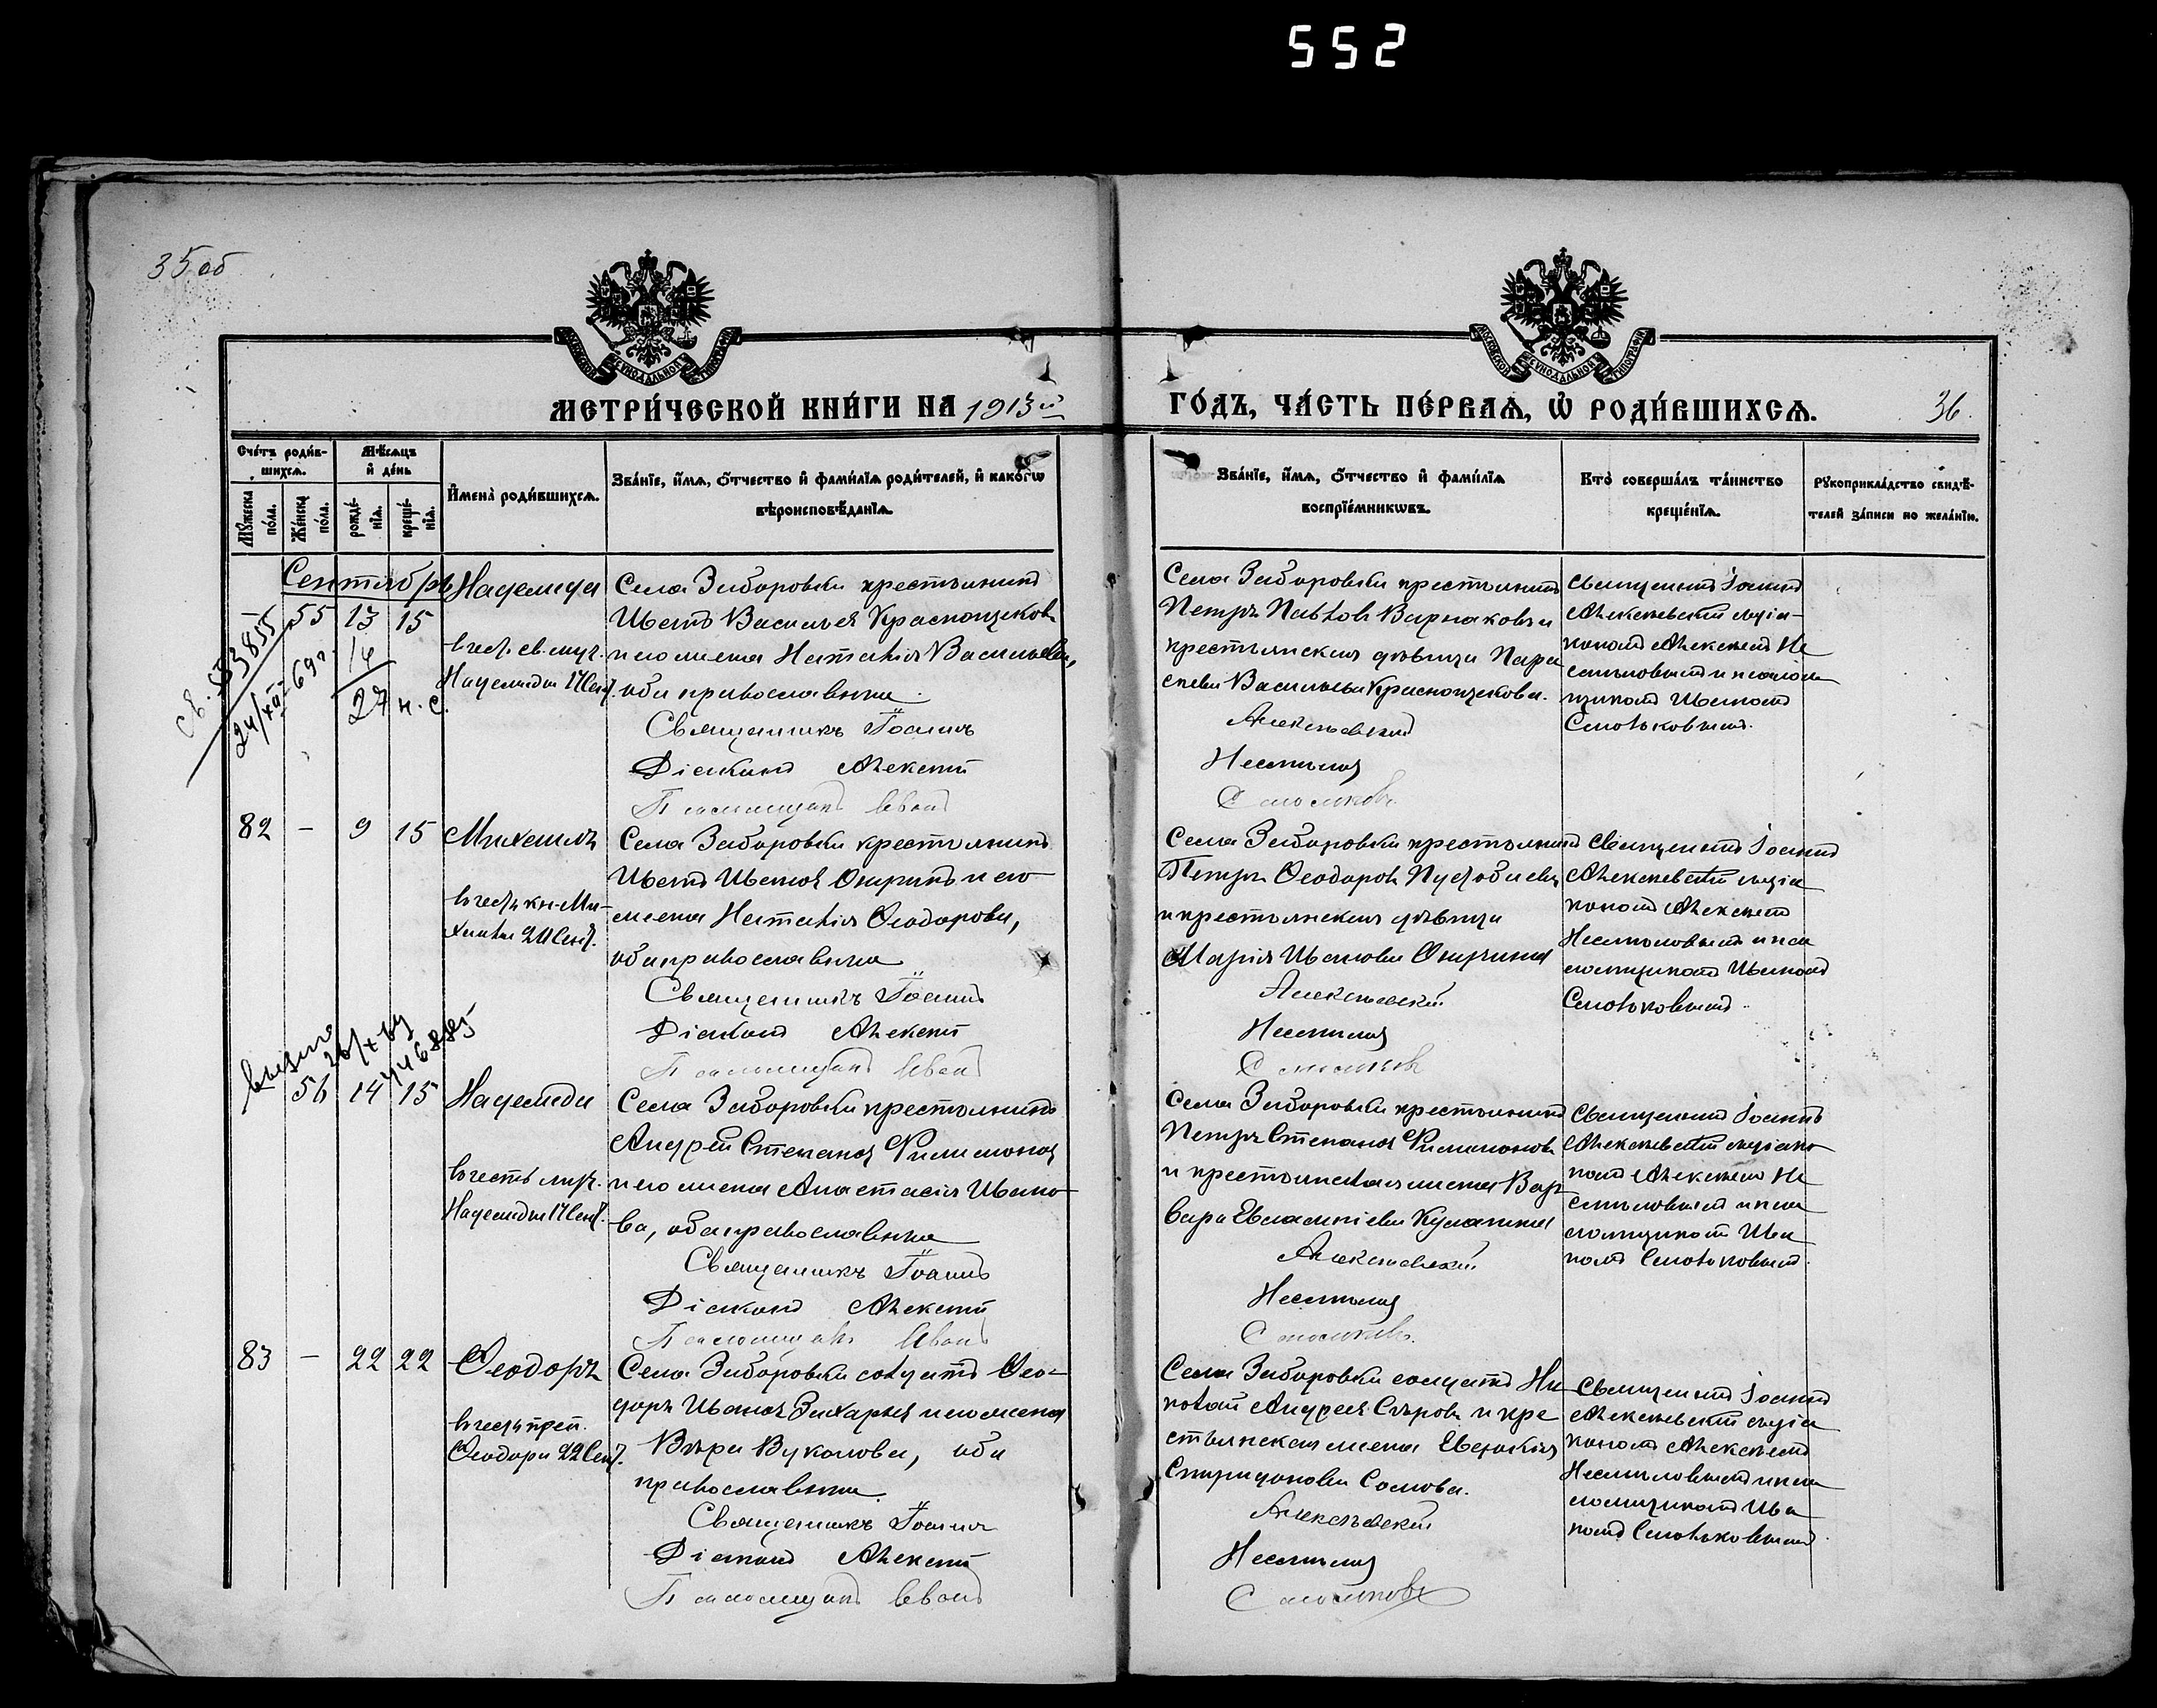 552
35 об
МЕТРИ́ЧЕСКОЙ КНИ́ГИ НА 1913й ГО́ДЪ, ЧА́СТЬ ПЕ́РВАЯ, Ѡ҆ РОДИ́ВШИХСЯ.
36.
Сче́тъ роди́в-
шихся.
Мѣ́сяцъ
и҆ де́нь
Мꙋ́жеска по́ла.
Же́нска по́ла.
рожде́-
нїѧ.
креще́-
нїѧ.
И҆мена̀ роди́вшихся.
Зва́нїе, и҆́мя, ѻ҆́тчество и҆ фами́лїя роди́телей, и҆ како́гѡ
вѣроисповѣ́данїя.
Зва́нїе, и҆́мя, ѻ҆́тчество и҆ фами́лїя
воспрїе́мникѡвъ.
Кто̀ соверша́лъ та́инство
креще́нїя.
Рꙋкоприкла́дство свидѣ́-
телей за́писи по жела́нїю.
Сентябрь
55 13 15
14
27 н. с.
24/XII-69г.
Надежда
въ честь св. муч.
Надежды 17 Сент.
Села Зиборовки крестьянинъ
Иванъ Васильевъ Краснощековъ
и его жена Наталія Васильева,
оба православные
Священникъ Іоаннъ
Діаконъ Алексѣй
Псаломщикъ Иванъ
Села Зиборовки крестьянинъ
Петръ Павловъ Варнаковъ и
крестьянская дѣвица Пара
скева Васильева Краснощекова.
Алексѣевскій
Несмѣловъ
Смолковъ
Священникъ Іоаннъ
Алексѣевскій съ діа-
кономъ Алексѣемъ Не
смѣловымъ и псалом
щикомъ Иваномъ
82 — 9 15
Михаилъ
въ честь кн. Ми-
хаила 20 Сент.
Села Зиборовки крестьянинъ
Иванъ Ивановъ и его
жена Наталія Ѳеодорова,
оба православные
Священникъ Іоаннъ
Діаконъ Алексѣй
Псаломщикъ Иванъ
Села Зиборовки крестьянинъ
Петръ Ѳеодоровъ
и крестьянская дѣвица
Марія Иванова
Алексѣевскій
Несмѣловъ
Священникъ Іоаннъ
Алексѣевскій съ діа
кономъ Алексѣемъ
Несмѣловымъ и пса
ломщикомъ Иваномъ
56 14 15
Надежда
въ честь муч.
Надежды 17 Сент.
Села Зиборовки крестьянинъ
Андрей Степановъ Филимоновъ
и его жена Анастасія Ивано
ва, оба православные
Священникъ Іоаннъ
Діаконъ Алексѣй
Псаломщикъ Иванъ
Села Зиборовки крестьянинъ
Петръ Степановъ Филимоновъ
и крестьянская жена Вар
вара Евлампіева
Алексѣевскій
Несмѣловъ
Священникъ Іоаннъ
Алексѣевскій съ діако
номъ Алексѣемъ Не
смѣловымъ и пса
ломщикомъ Ива
номъ
83 — 22 22
Ѳеодоръ
въ честь преп.
Ѳеодора 22 Сент.
Села Зиборовки солдатъ Ѳео-
доръ Ивановъ Захаровъ и его жена
Вѣра Вуколова, оба
православные.
Священникъ Іоаннъ
Діаконъ Алексѣй
Псаломщикъ Иванъ
Села Зиборовки солдатъ Ни
колай Андреевъ Сѣровъ и кре
стьянская жена Евдокія
Спиридонова Сомова.
Алексѣевскій
Несмѣловъ
Священникъ Іоаннъ
Алексѣевскій съ діа
кономъ Алексѣемъ
Несмѣловымъ и пса
ломщикомъ Ива
номъ